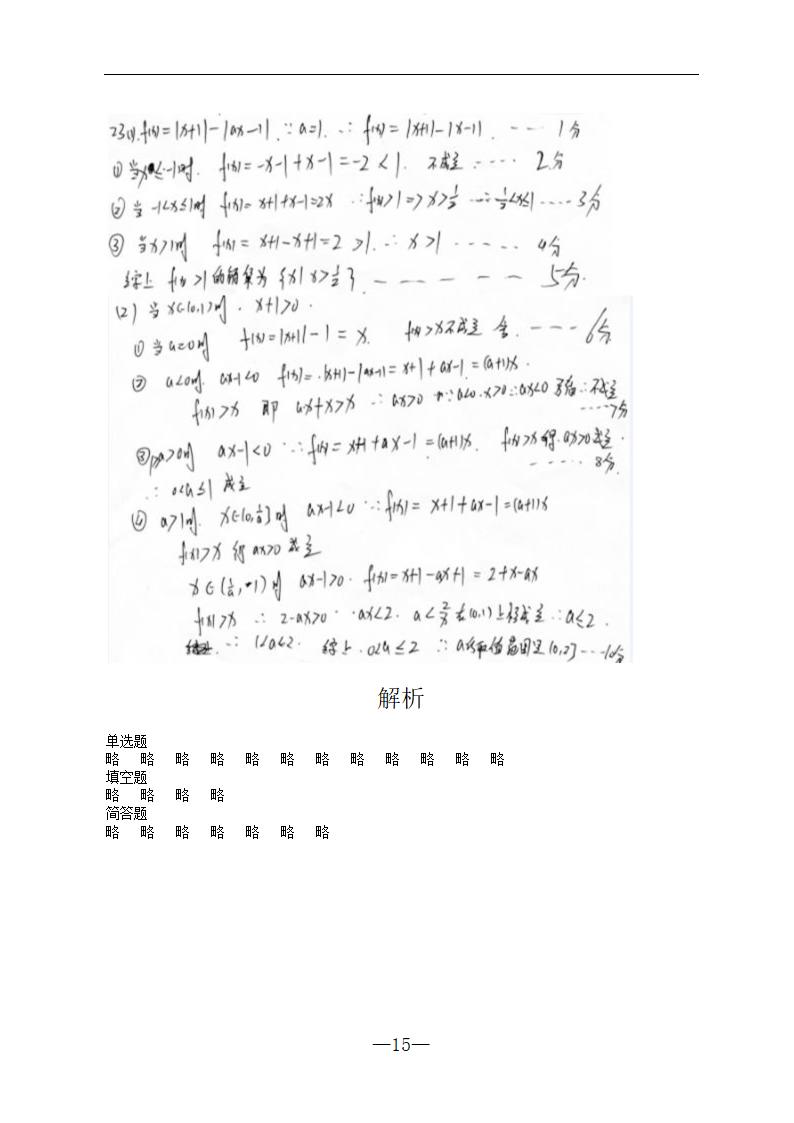 23(1).f(x)=|x+1|-|ax-1|.∵a=1.∴f(x)=|x+1|-|x-1|.---1分
①当x≤-1时.f(x)=-x-1+x-1=-2<1.不成立.----2分
②当-1<x≤1时f(x)=x+1+x-1=2x∴f(x)>1=>x>1/2∴1/2<x≤1----3分
③当x>1时f(x)=x+1-x+1=2>1.∴x>1-----4分
综上f(x)>1的解集为{x|x>1/2}.-----5分.
(2)当x∈(0,1)时.x+1>0.
①当a=0时f(x)=|x+1|-1=x.f(x)>x不成立舍.----6分
②a<0时.ax-1<0f(x)=|x+1|-|ax-1|=x+1+ax-1=(a+1)x.
f(x)>x即ax+x>x∴ax>0∵a<0.x>0∴ax<0矛盾∴不成立
-----7分
a>0时ax-1<0∴f(x)=x+1+ax-1=(a+1)x.f(x)>x得ax>0成立.
-----8分.
∴0<a≤1成立
④a>1时.x∈(0,1/a]时ax-1<0∴f(x)=x+1+ax-1=(a+1)x
f(x)>x得ax>0成立
x∈(1/a,1)时ax-1>0.f(x)=x+1-ax+1=2+x-ax
f(x)>x∴2-ax>0ax<2.a<2/x在(0,1)上恒成立∴a≤2.
∴1<a≤2.综上.0<a≤2∴a的取值范围是(0,2]---10分
解析
单选题
略 略 略 略 略 略 略 略 略 略 略 略
填空题
略 略 略 略
简答题
略 略 略 略 略 略 略
—15—